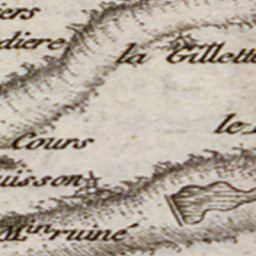 iers
diere
la Gillette
le
Cours
uisson
M.in ruiné